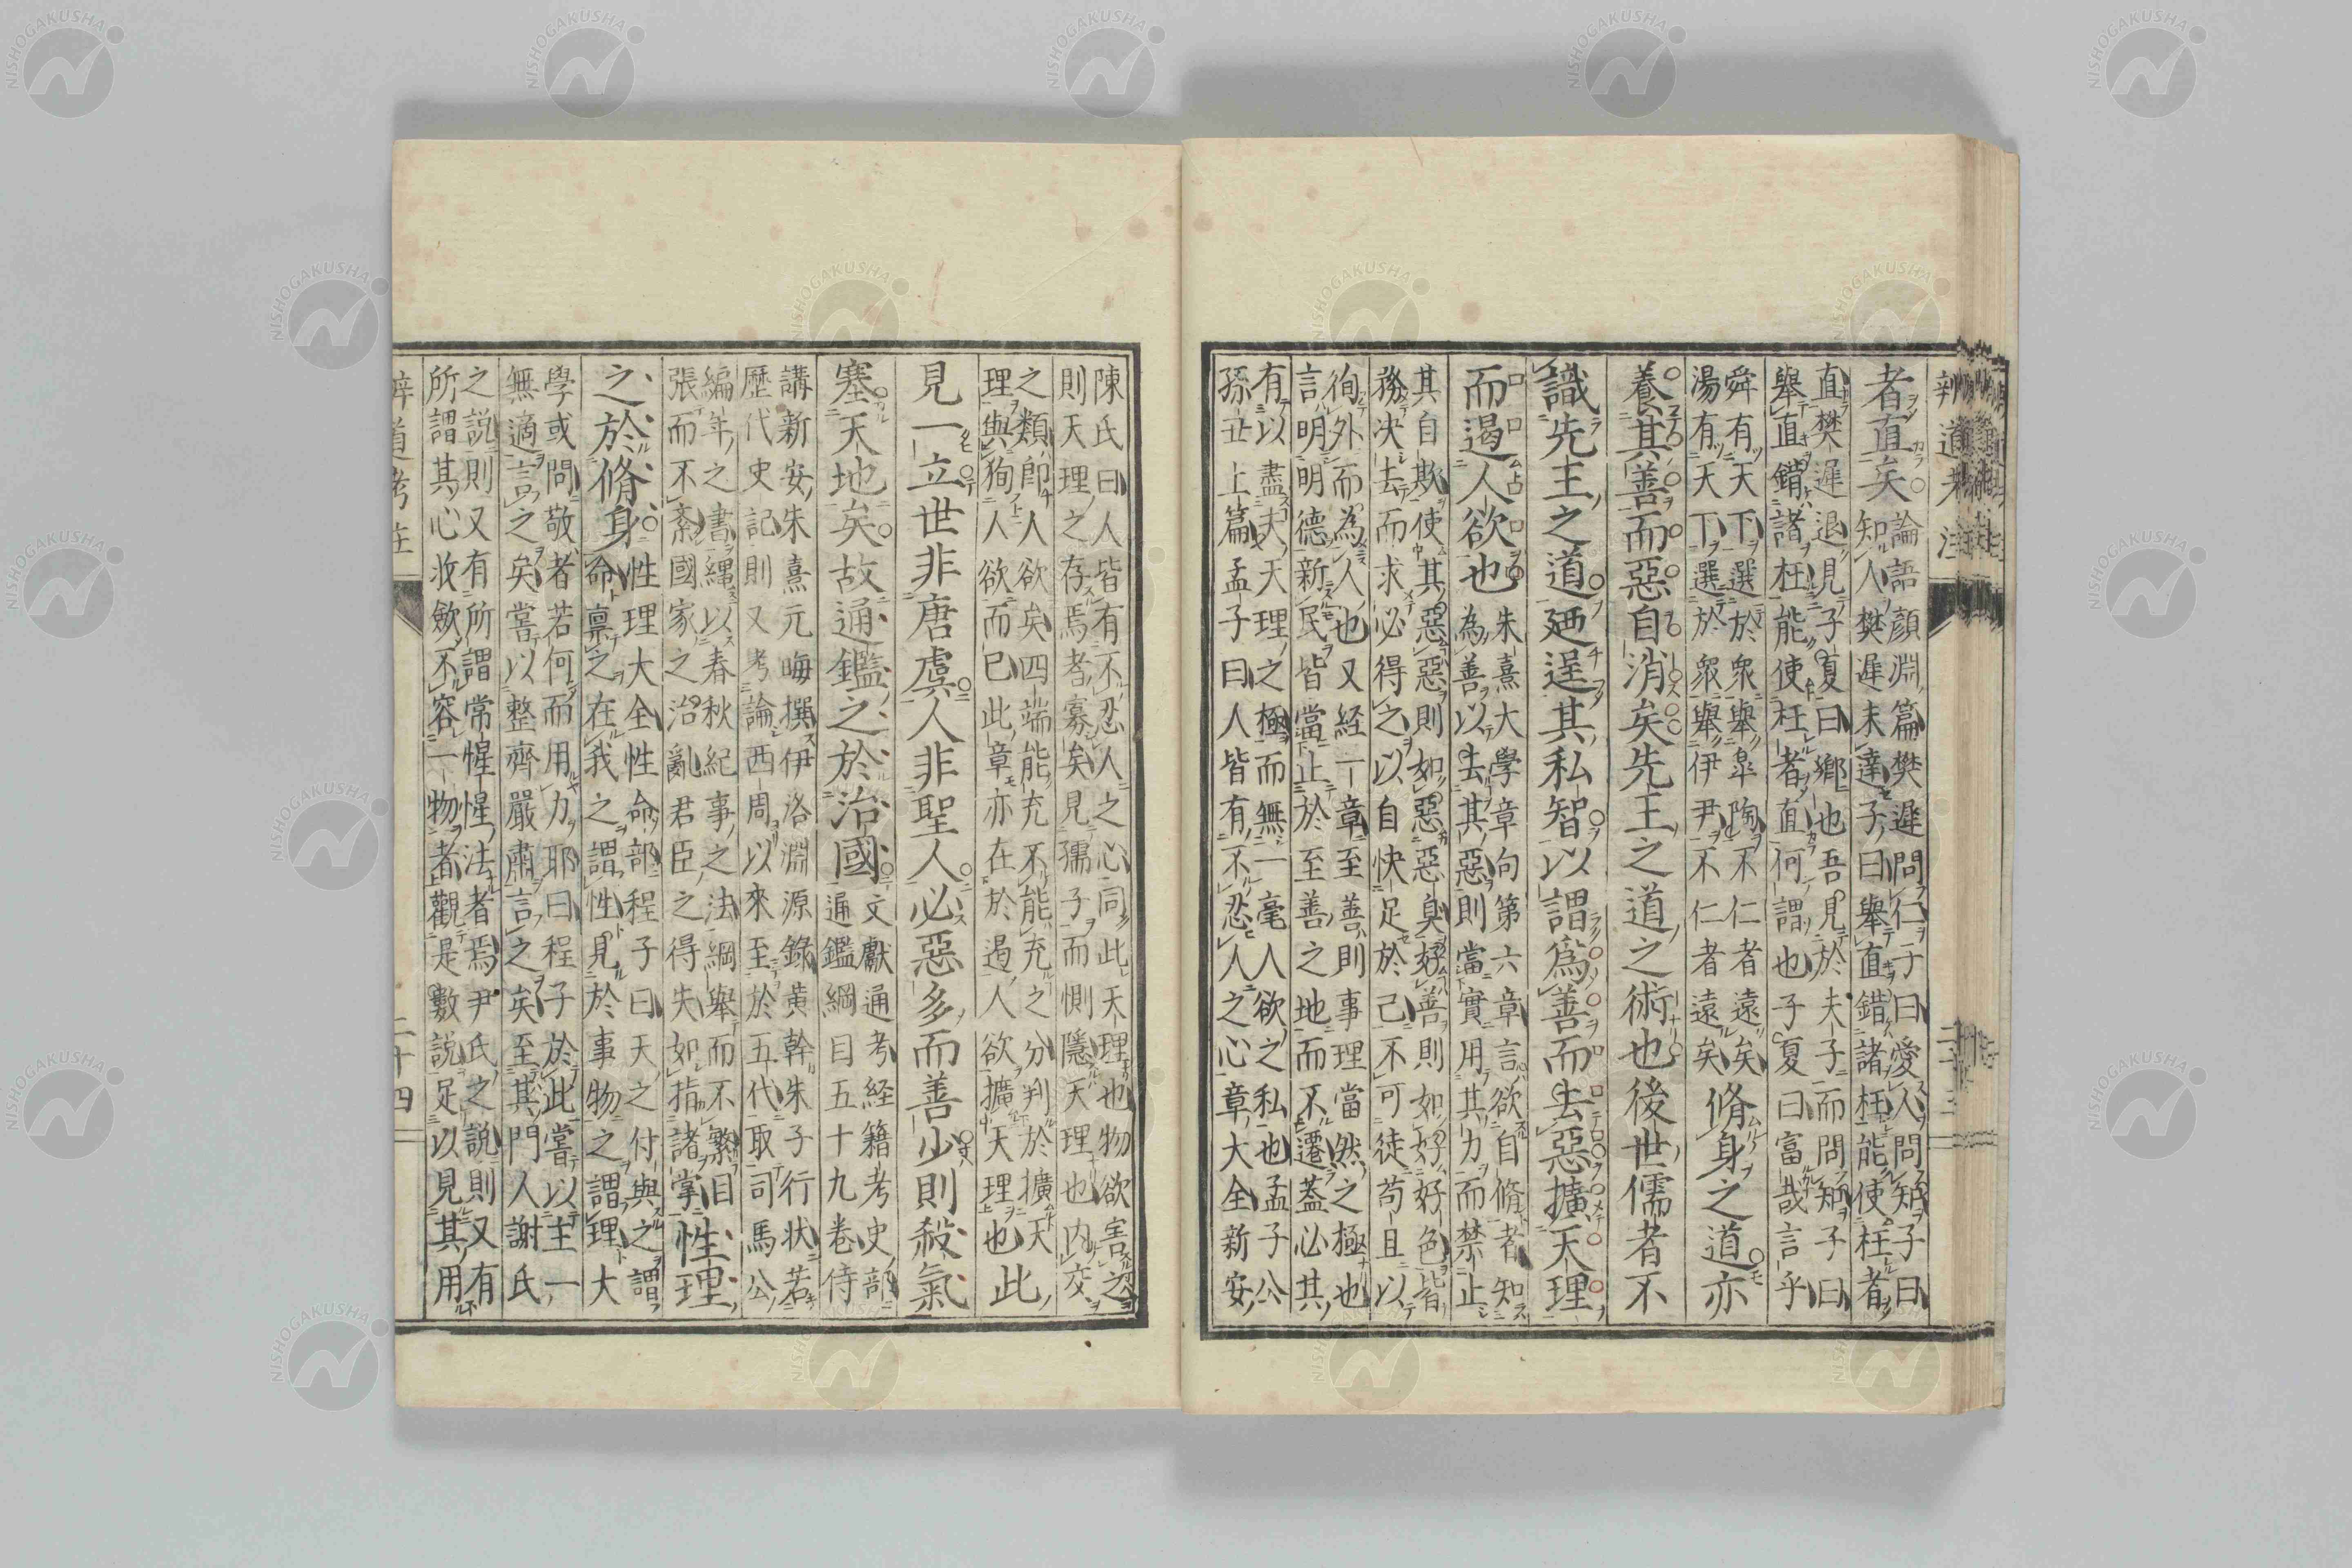 者直矣
論語顔淵篇樊遲問仁子曰愛人問知子曰
知人樊遲未達子曰舉直錯諸枉能使枉者
直樊遲退見子夏曰鄉也吾見於夫子而問知子曰
舉直錯諸枉能使枉者直何謂也子夏曰富哉言乎
舜有天下選於衆舉皐陶不仁者遠矣
湯有天下選於衆舉伊尹不仁者遠矣
脩身之道亦
養其善而惡自消矣先王之道之術也後世儒者不
識先王之道廼逞其私智以謂爲善而去惡擴天理
而遏人欲也
朱熹大學章句第六章言欲自脩者知
為善以去其惡則當實用其力而禁止
其自欺使其惡惡則如惡惡臭好善則如好好色皆
務决去而求必得之以自快足於己不可徒苟且以
徇外而為人也又経一章至善則事理當然之極也
言明明德新民皆當止於至善之地而不遷蓋必其
有以盡夫天理之極而無一毫人欲之私也孟子公
孫丑上篇孟子曰人皆有不忍人之心章大全新安
陳氏曰人皆有不忍人之心同此天理也物欲害之
則天理之存焉者寡矣見孺子而惻隱天理也内交
之類即人欲矣四端能充不能充之分判於擴天
理與狥人欲而已此章亦在於遏人欲擴天理也
此
見一立世非唐虞人非聖人必惡多而善少則殺氣
塞天地矣故通鑑之於治國
文獻通考経籍考史部
通鑑綱目五十九卷侍
講新安朱熹元晦撰伊洛淵源錄黄幹朱子行状若
歷代史記則又考論西周以來至於五代取司馬公
編年之書繩以春秋紀事之法綱舉而不繁目
張而不紊國家之治亂君臣之得失如指諸掌
性理
之於脩身
性理大全性命部程子曰天之付與之謂
命稟之在我之謂性見於事物之謂理大
學或問敬者若何而用力耶曰程子於此嘗以主一
無適言之矣嘗以整齊嚴肅言之矣至其門人謝氏
之説則又有所謂常惺惺法者焉尹氏之説則又有
所謂其心收斂不容一物者觀是數説足以見其用
二十四
NISHOGAKUSHA